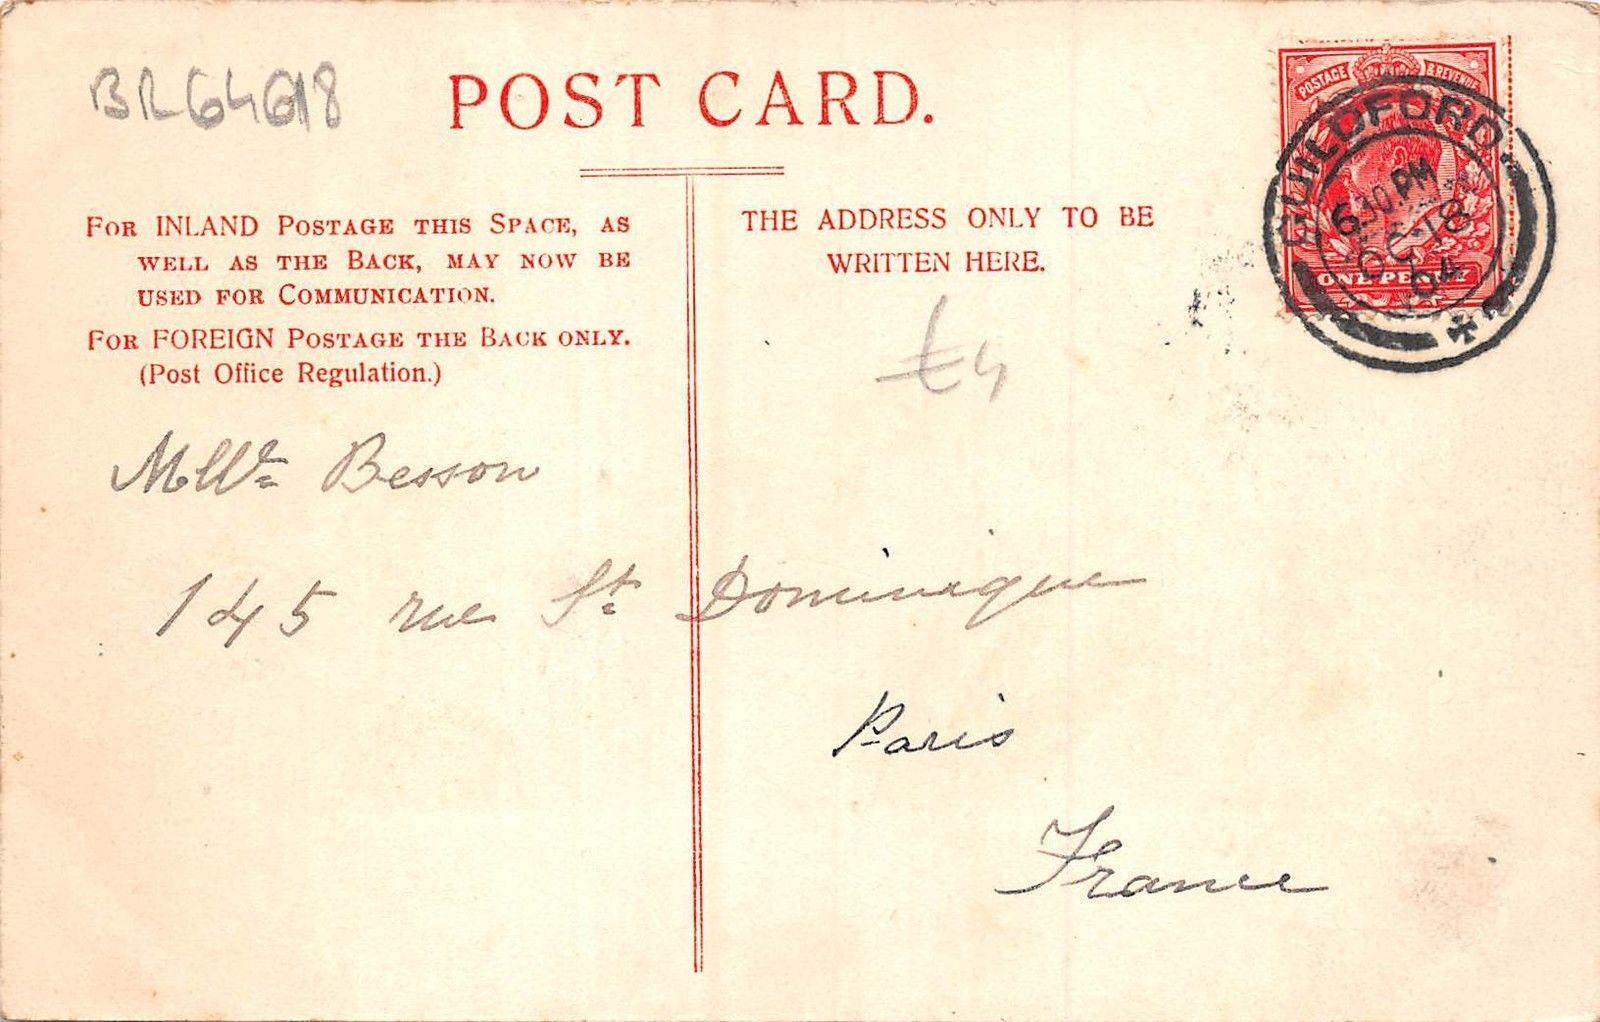 BR64618
POST CARD.
POSTAGE & REVENUE
GUILDFORD.
6 30 PM
OC 18
04
ONE PENNY
FOR INLAND POSTAGE THIS SPACE, AS
WELL AS THE BACK, MAY NOW BE
USED FOR COMMUNICATION.
FOR FOREIGN POSTAGE THE BACK ONLY.
(Post Office Regulation.)
THE ADDRESS ONLY TO BE
WRITTEN HERE.
£4
Mlle Besson
145 rue St Dominique
Paris
France